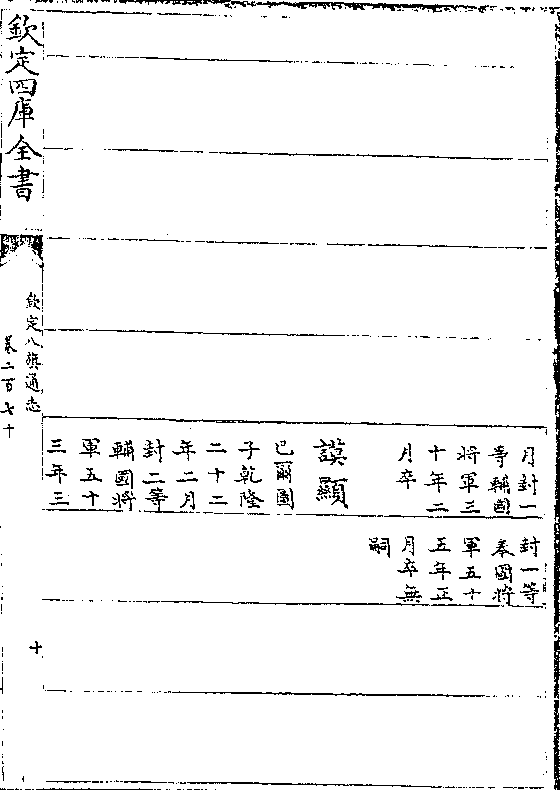 月封一
等輔國
將軍三
十年二
月卒
謨顯
巴爾圖
子乾隆
二十二
年二月
封二等
輔國將
軍五十
三年三
封一等
奉國將
軍五十
五年正
月卒無
嗣
欽定四庫全書
欽定八旗通志
卷二百七十
十